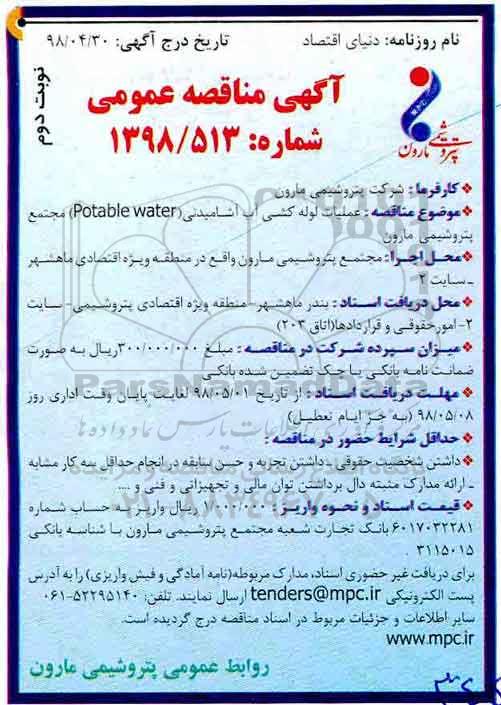 نام روزنامه: دنیای اقتصاد
تاریخ درج آگهی: ۹۸/۰۴/۳۰
نوبت دوم
آگهی مناقصه عمومی
شماره: ۱۳۹۸/۵۱۳
پتروشیمی مارون
کارفرما: شرکت پتروشیمی مارون
موضوع مناقصه: عملیات لوله کشی آب آشامیدنی(Potable water) مجتمع
پتروشیمی مارون
محل اجرا: مجتمع پتروشیمی مارون واقع در منطقه ویژه اقتصادی ماهشهر
ـ سایت ۲
محل دریافت اسناد: بندر ماهشهر- منطقه ویژه اقتصادی پتروشیمی- سایت
۲- امورحقوقی و قراردادها(اتاق ۲۰۳)
میزان سپرده شرکت در مناقصه: مبلغ ۳۰۰/۰۰۰/۰۰۰ریال به صورت
ضمانت نامه بانکی یا چک تضمین شده بانکی
مهلت دریافت اسناد: از تاریخ ۹۸/۰۵/۰۱ لغایت پایان وقت اداری روز
۹۸/۰۵/۰۸ (به جز ایام تعطیل)
حداقل شرایط حضور در مناقصه:
داشتن شخصیت حقوقی- داشتن تجربه و حسن سابقه در انجام حداقل سه کار مشابه
ـ ارائه مدارک مثبته دال برداشتن توان مالی و تجهیزاتی و فنی و ....
قیمت اسناد و نحوه واریز: ۱/۰۰۰/۰۰۰ ریال واریز به حساب شماره
۶۰۱۷۰۳۲۲۸۱ بانک تجارت شعبه مجتمع پتروشیمی مارون با شناسه بانکی
۳۱۱۵۰۱۵.
برای دریافت غیر حضوری اسناد، مدارک مربوطه(نامه آمادگی و فیش واریزی) را به آدرس
پست الکترونیکی tenders@mpc.ir ارسال نمایند. تلفن: ۵۲۲۹۵۱۴۰-۰۶۱
سایر اطلاعات و جزئیات مربوط در اسناد مناقصه درج گردیده است.
www.mpc.ir
روابط عمومی پتروشیمی مارون
ParsNamadData